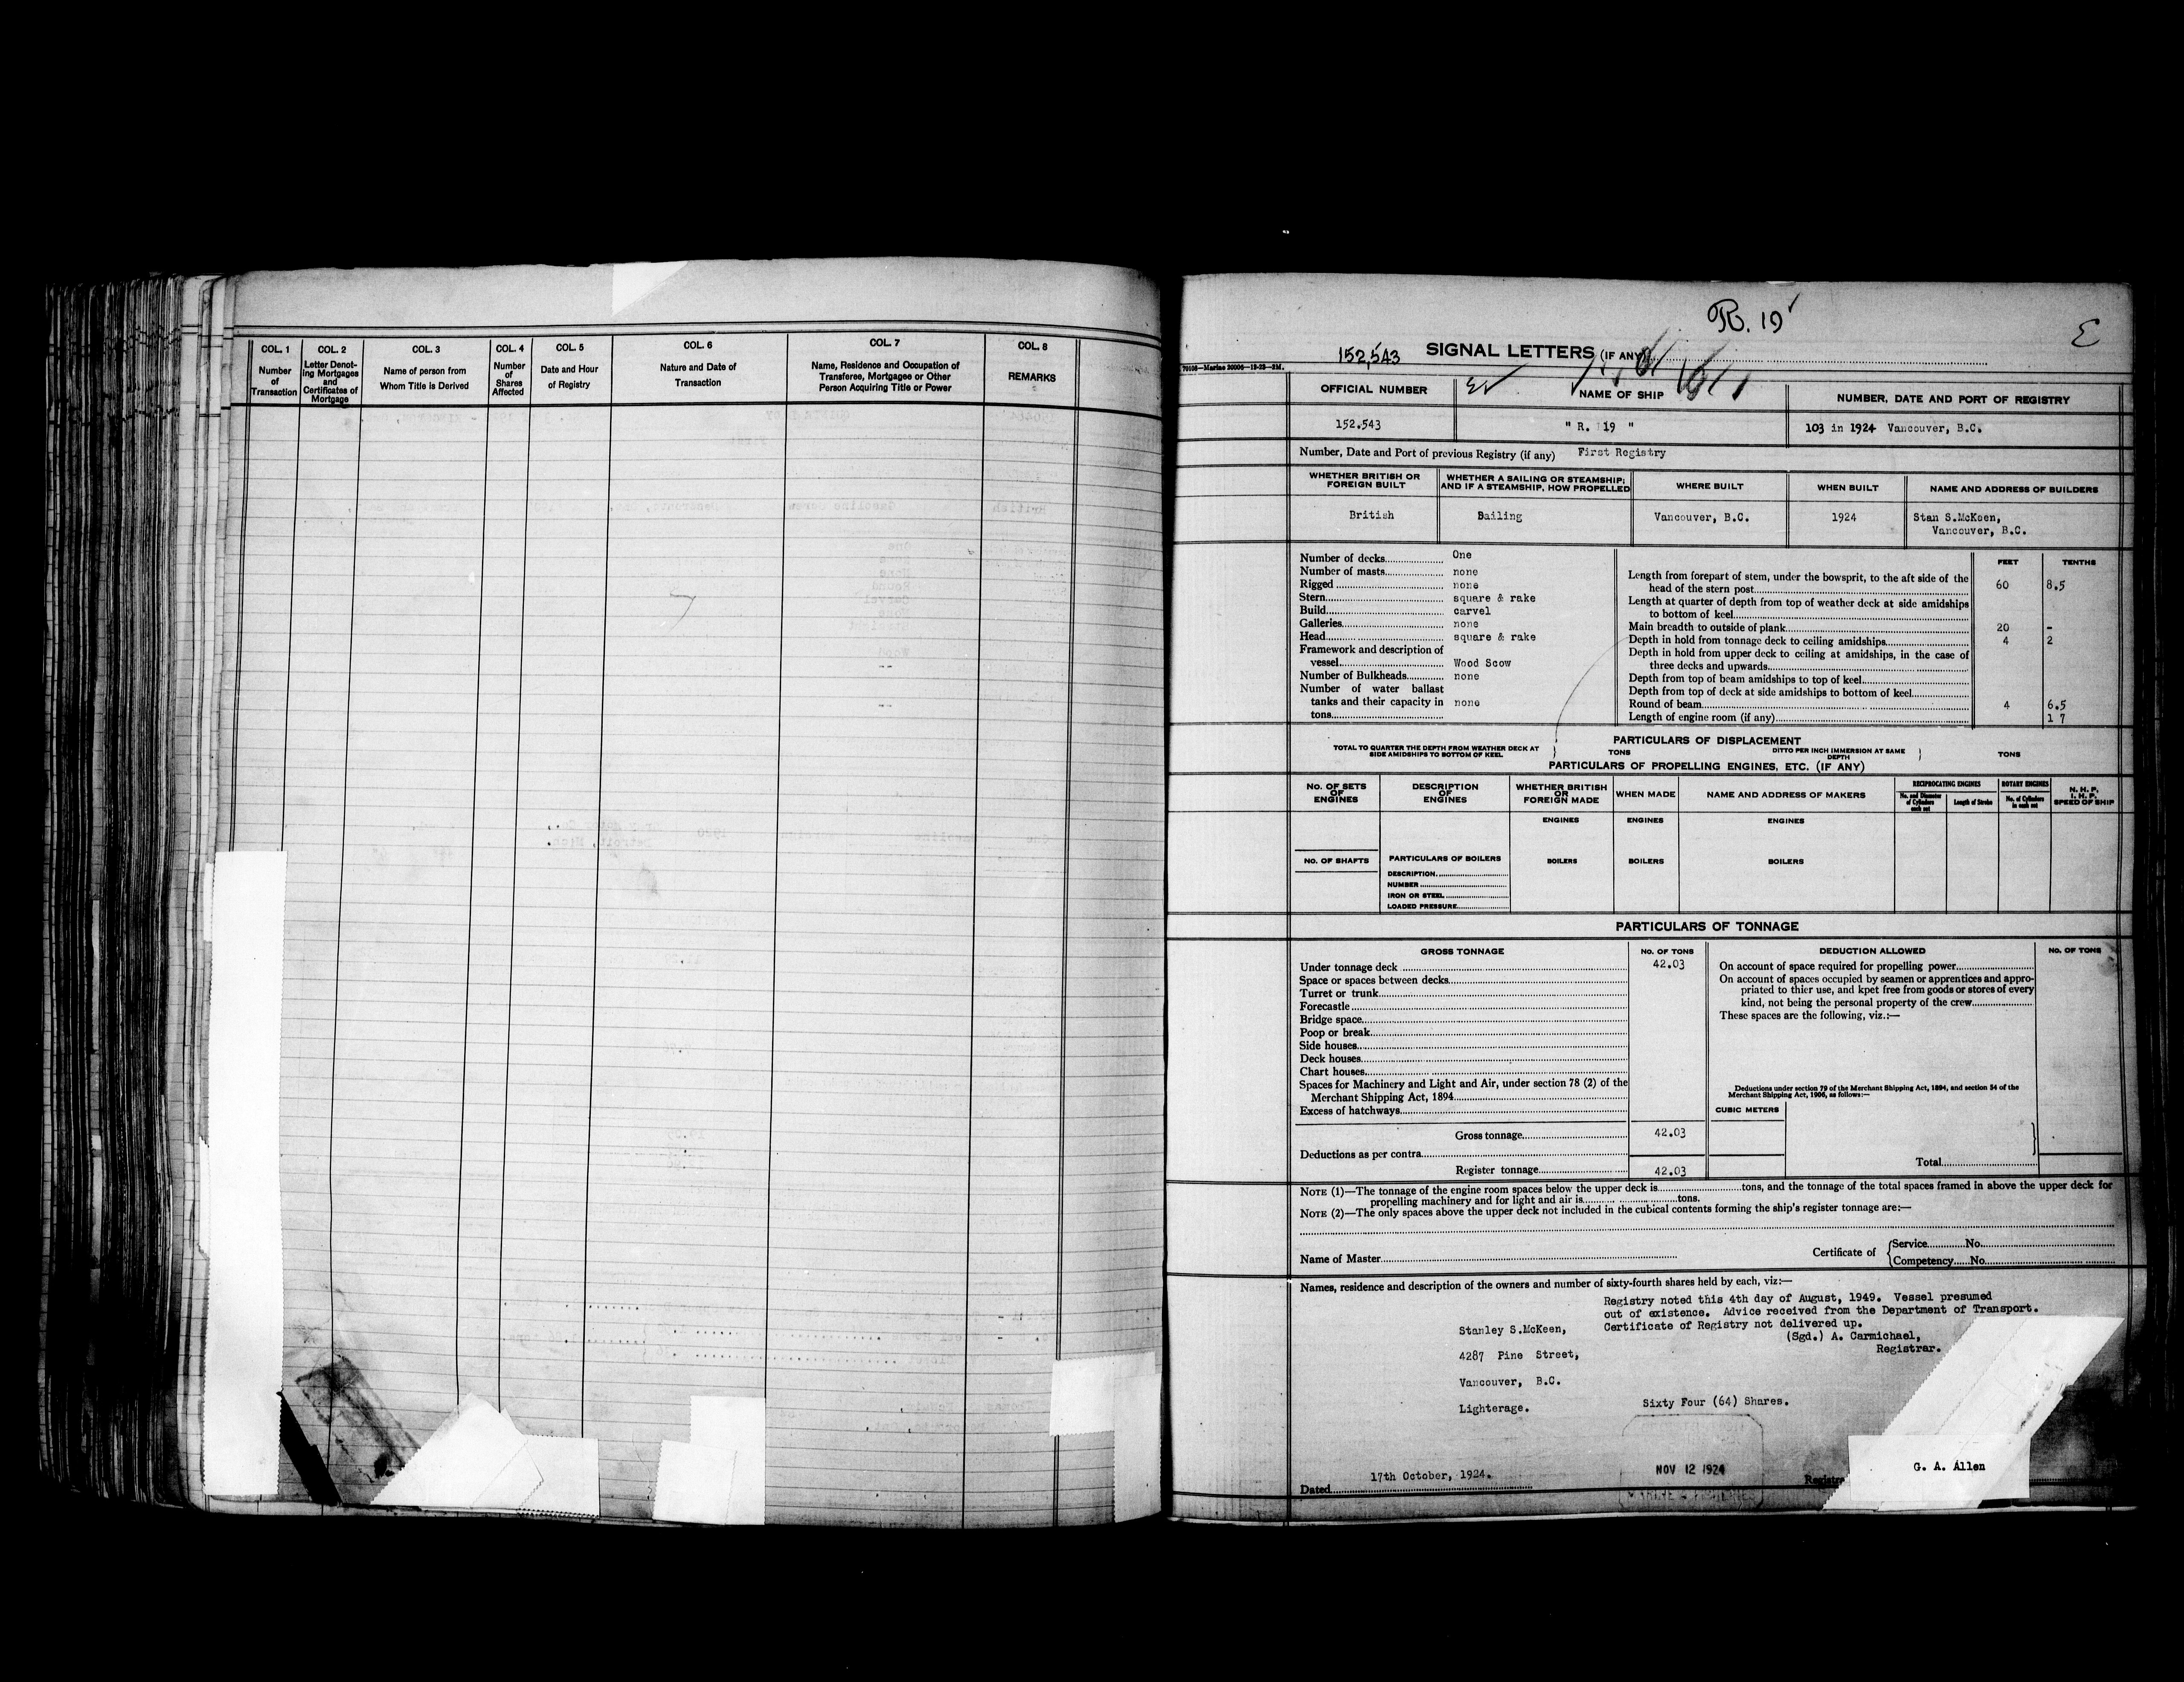 COL. 1
Number
of
Transaction
COL. 2
Letter Denot-
ing Mortgages
and
Certificates of
Mortgage
COL. 3
Name of person from
Whom Title is Derived
COL. 4
Number
of
Shares
Affected
COL. 5
Date and Hour
of Registry
COL. 6
Nature and Date of
Transaction
COL. 7
Name, Residence and Occupation of
Transferee, Mortgagee or Other
Person Acquiring Title or Power
COL. 8
REMARKS
R. 19
152,543 SIGNAL LETTERS (IF ANY)
OFFICIAL NUMBER
NAME OF SHIP
NUMBER, DATE AND PORT OF REGISTRY
152.543
" R. 19 "
103 in 1924 Vancouver, B.C.
Number, Date and Port of previous Registry (if any) First Registry
WHETHER BRITISH OR
FOREIGN BUILT
WHETHER A SAILING OR STEAMSHIP;
AND IF A STEAMSHIP, HOW PROPELLED
WHERE BUILT
WHEN BUILT
NAME AND ADDRESS OF BUILDERS
British
Bailing
Vancouver, B.C.
1924
Stan S.McKeen,
Vancouver, B.C.
Number of decks One
Number of masts none
Rigged none
Stern square & rake
Build carvel
Galleries none
Head square & rake
Framework and description of
vessel Wood Scow
Number of Bulkheads none
Number of water ballast
tanks and their capacity in none
tons
FEET TENTHS
Length from forepart of stem, under the bowsprit, to the aft side of the
head of the stern post 60 8.5
Length at quarter of depth from top of weather deck at side amidships
to bottom of keel
Main breadth to outside of plank 20 -
Depth in hold from tonnage deck to ceiling amidships 4 2
Depth in hold from upper deck to ceiling at amidships, in the case of
three decks and upwards
Depth from top of beam amidships to top of keel
Depth from top of deck at side amidships to bottom of keel
Round of beam 4 6.5
Length of engine room (if any) 1 7
PARTICULARS OF DISPLACEMENT
TOTAL TO QUARTER THE DEPTH FROM WEATHER DECK AT
SIDE AMIDSHIPS TO BOTTOM OF KEEL
TONS
DITTO PER INCH IMMERSION AT SAME
DEPTH
TONS
PARTICULARS OF PROPELLING ENGINES, ETC. (IF ANY)
NO. OF SETS
OF
ENGINES
DESCRIPTION
OF
ENGINES
WHETHER BRITISH
OR
FOREIGN MADE
WHEN MADE
NAME AND ADDRESS OF MAKERS
RECIPROCATING ENGINES
No. and Diameter
of Cylinders
each set
Length of Stroke
ROTARY ENGINES
No. of Cylinders
in each set
N. H. P.
I. H. P.
SPEED OF SHIP
ENGINES
ENGINES
ENGINES
NO. OF SHAFTS
PARTICULARS OF BOILERS
BOILERS
BOILERS
BOILERS
DESCRIPTION
NUMBER
IRON OR STEEL
LOADED PRESSURE
PARTICULARS OF TONNAGE
GROSS TONNAGE
NO. OF TONS
DEDUCTION ALLOWED
NO. OF TONS
Under tonnage deck 42.03
Space or spaces between decks
Turret or trunk
Forecastle
Bridge space
Poop or break
Side houses
Deck houses
Chart houses
Spaces for Machinery and Light and Air, under section 78 (2) of the
Merchant Shipping Act, 1894
Excess of hatchways
Gross tonnage 42.03
Deductions as per contra
Register tonnage 42.03
On account of space required for propelling power
On account of spaces occupied by seamen or apprentices and appro-
priated to thier use, and kpet free from goods or stores of every
kind, not being the personal property of the crew
These spaces are the following, viz.:—
Deductions under section 79 of the Merchant Shipping Act, 1894, and section 54 of the
Merchant Shipping Act, 1906, as follows:—
CUBIC METERS
Total
NOTE (1)—The tonnage of the engine room spaces below the upper deck is tons, and the tonnage of the total spaces framed in above the upper deck for
propelling machinery and for light and air is tons.
NOTE (2)—The only spaces above the upper deck not included in the cubical contents forming the ship's register tonnage are:—
Name of Master
Certificate of
Service No.
Competency No.
Names, residence and description of the owners and number of sixty-fourth shares held by each, viz:—
Registry noted this 4th day of August, 1949. Vessel presumed
out of existence. Advice received from the Department of Transport.
Certificate of Registry not delivered up.
(Sgd.) A. Carmichael,
Registrar.
Stanley S.McKeen,
4287 Pine Street,
Vancouver, B.C.
Lighterage.
Sixty Four (64) Shares.
Dated 17th October, 1924.
NOV 12 1924
G. A. Allen